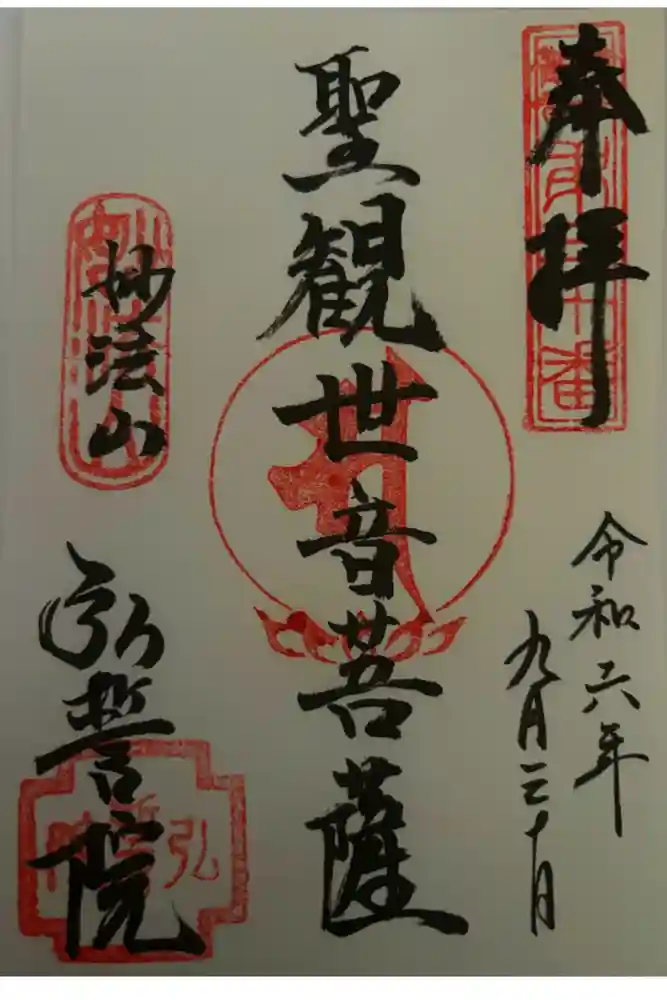 奉拝
令和六年
九月三十日
聖観世音菩薩
妙法山
弘誓院